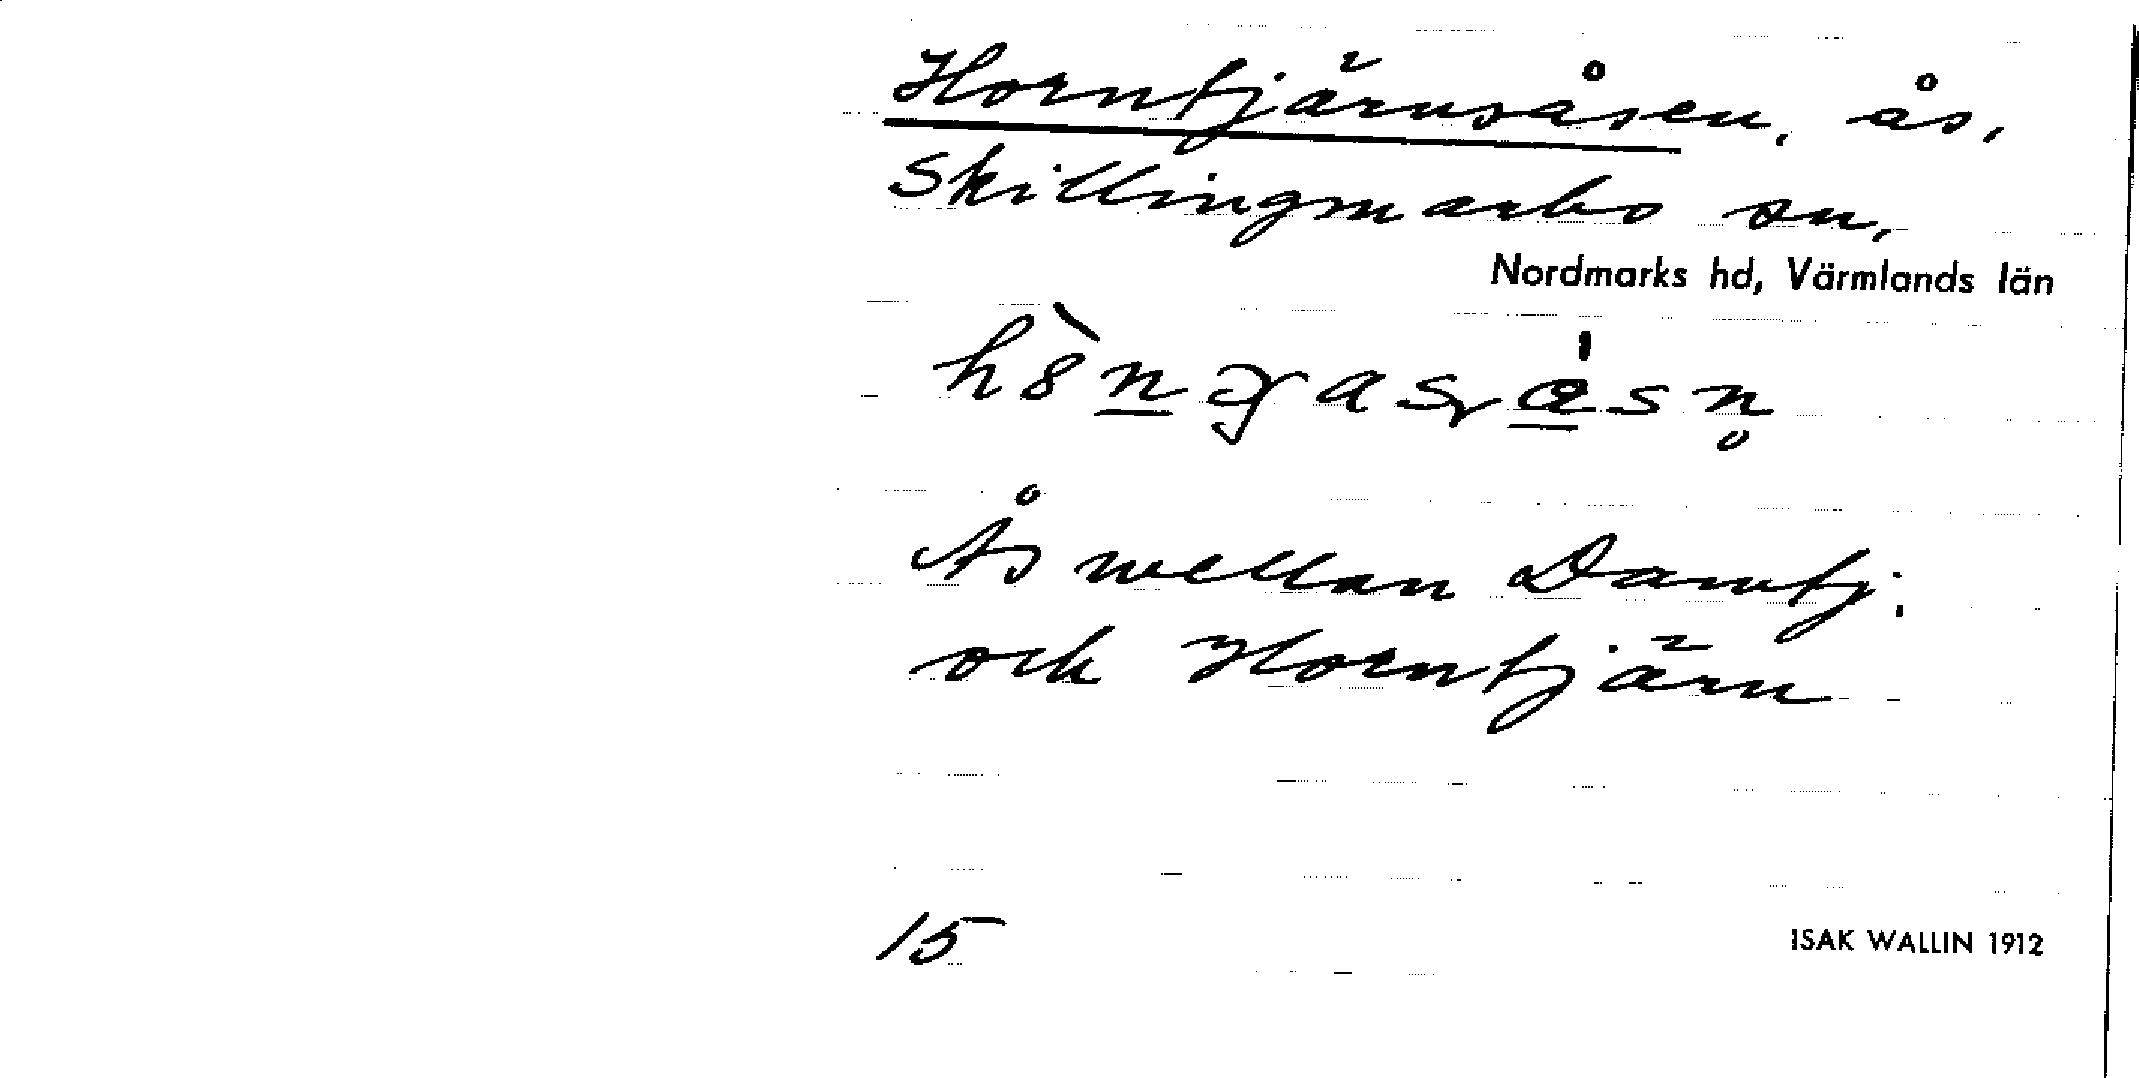 Horntjärnsåsen, ås,
Skillingmarks sn,
Nordmarks hd, Värmlands län
Ås mellan Damtj:
och Horntjärn
15
ISAK WALLIN 1912